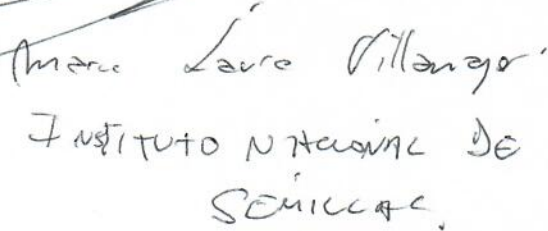 María Laura Villamayor
INSTITUTO NACIONAL DE
SEMILLAS.